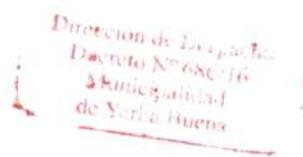 Dirección de Despacho
Decreto N° 686/16
Municipalidad
de Yerba Buena